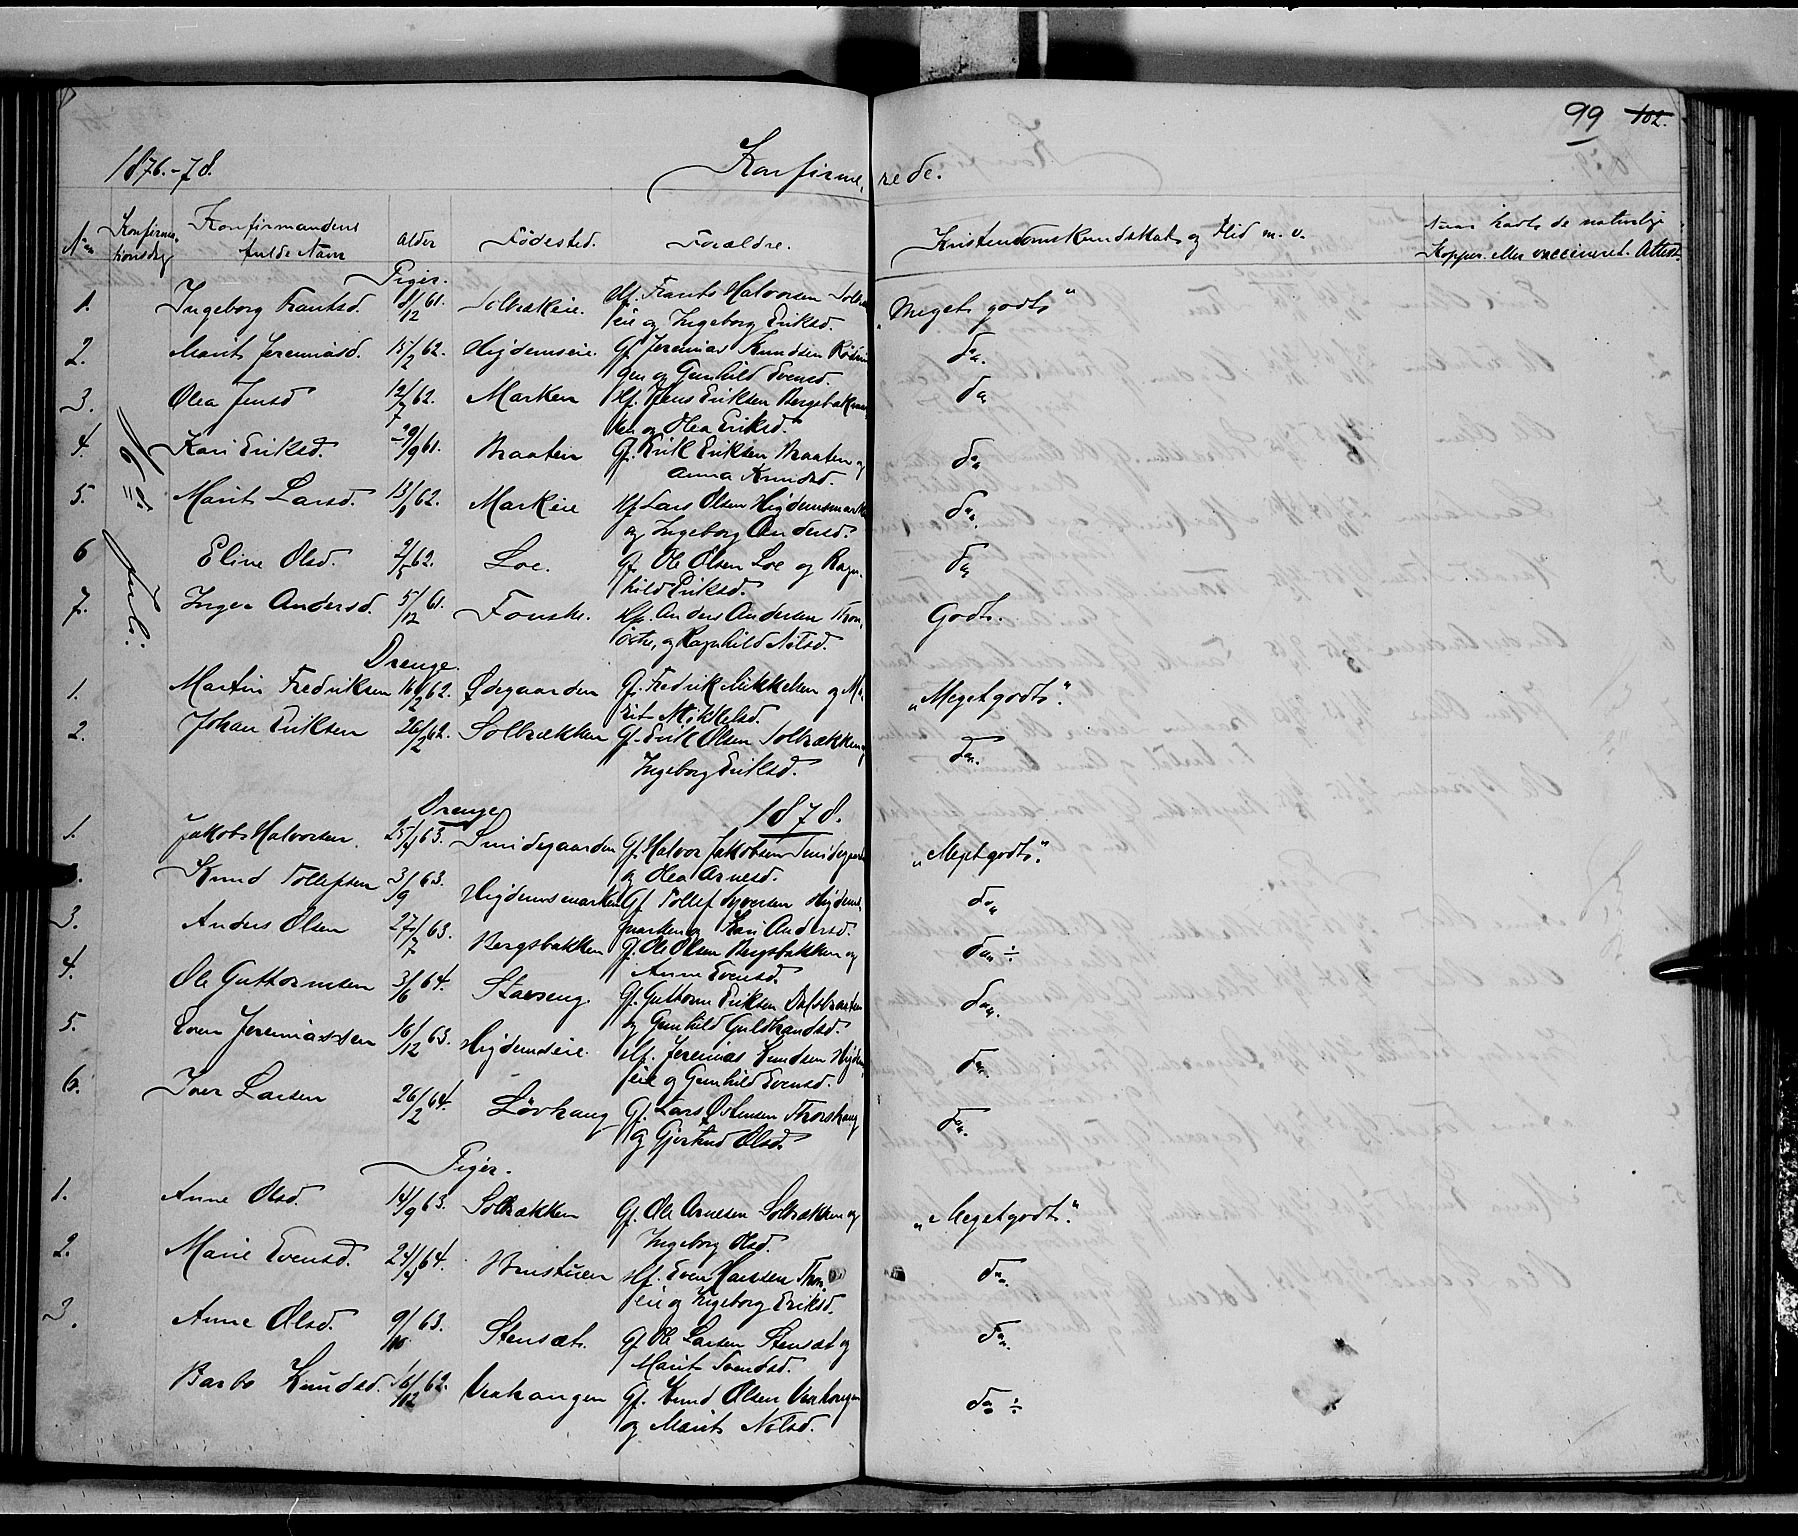 99 102.
1876.-78. Konfirme, rede.
No Konfirma,
tionsdag Konfirmandens
fulde Navn Alder Fødested. Forældre. Kristendomskundskab og Flid m. v. Naar havt de naturlige
Kopper eller vaccineret. Attest.
16de Juli.
Piger.
1. Ingeborg Frantsd. 8/12 61. Solbrækeie. Hf. Frants Halvorsen
eie og Ingeborg Eriksd. "Meget godt"
2. Marit Jeremiasd. 15/2 62. Høgdemseie. Gf. Jeremias Knudsen
gen og Gunhild Evensd. do.
3. Olea Jensd 12/7 62. Marken Hf. Jens Eriksen
ken og Olea Eriksd. do
4. Kari Eriksd. 29/9 61. Braaten Gf. Erik Eriksen Braaten og
Anna Knudsd. do
5. Marit Larsd. 13/1 62. Markeie Hf. Lars Olsen
og Ingeborg Andersd. do.
6 Eline Olsd. 2/5 62. Loe. Gf. Ole Olsen Loe og Ragn,
hild Eriksd. do
7. Inger Andersd. 5/12 61. Anders Andersen
og Ragnhild Nilsd. Godt.
Drenge.
1. Martin Fredriksen 16/2 62. Ødegaarden Gf. Fredrik Mikkelsen og Ma,
rit Mikkelsd. "Megetgodt".
2. Johan Eriksen 26/2 62. Solbrækken Gf. Erik Olsen Solbrækken og
Ingeborg Eriksd. do.
Drenge 1878.
1. Jakob Halvorsen. 25/1 63. Smidegaarden Gf. Halvor Jakobsen
og Olea Arnesd. "Megetgodt".
Knud Tollefsen 3/9 63. Høgdemsmarken Gf. Tollef Syversen
marken og Kari Andersd. do
3. Anders Olsen 27/7 63. Bergsbakken Gf. Ole Olsen Bergsbakken og
Anne Evensd. do ÷
4. Ole Guttormsen 3/6 64. Gf. Guttorm Eriksen
og Gunhild Guldbrandsd. do.
5. Even Jeremiassen 16/12 63. Høgdemseie. Hf. Jeremias Knudsen
eie og Gunhild Evensd. do.
6. Iver Larsen 26/2 64. Løvhaug Gf. Lars Østensen Thorshaug
og Gjertrud Olsd. do.
Piger.
1. Anne Olsd. 14/9 63. Solbrækken Gf. Ole Arnesen Solbrækken og
Ingeborg Olsd. "Megetgodt".
2. Marie Evensd. 24/4 64. Hf. Even Hansen
eie og Ingeborg Eriksd. do.
3. Anne Olsd. 9/10 63. Stensæt. Gf. Ole Larsen Stensæt og
Marit Svendsd. do.
Barbo Knudsd. 16/12 62. Gf. Knud Olsen
og Marit Nilsd. do ÷